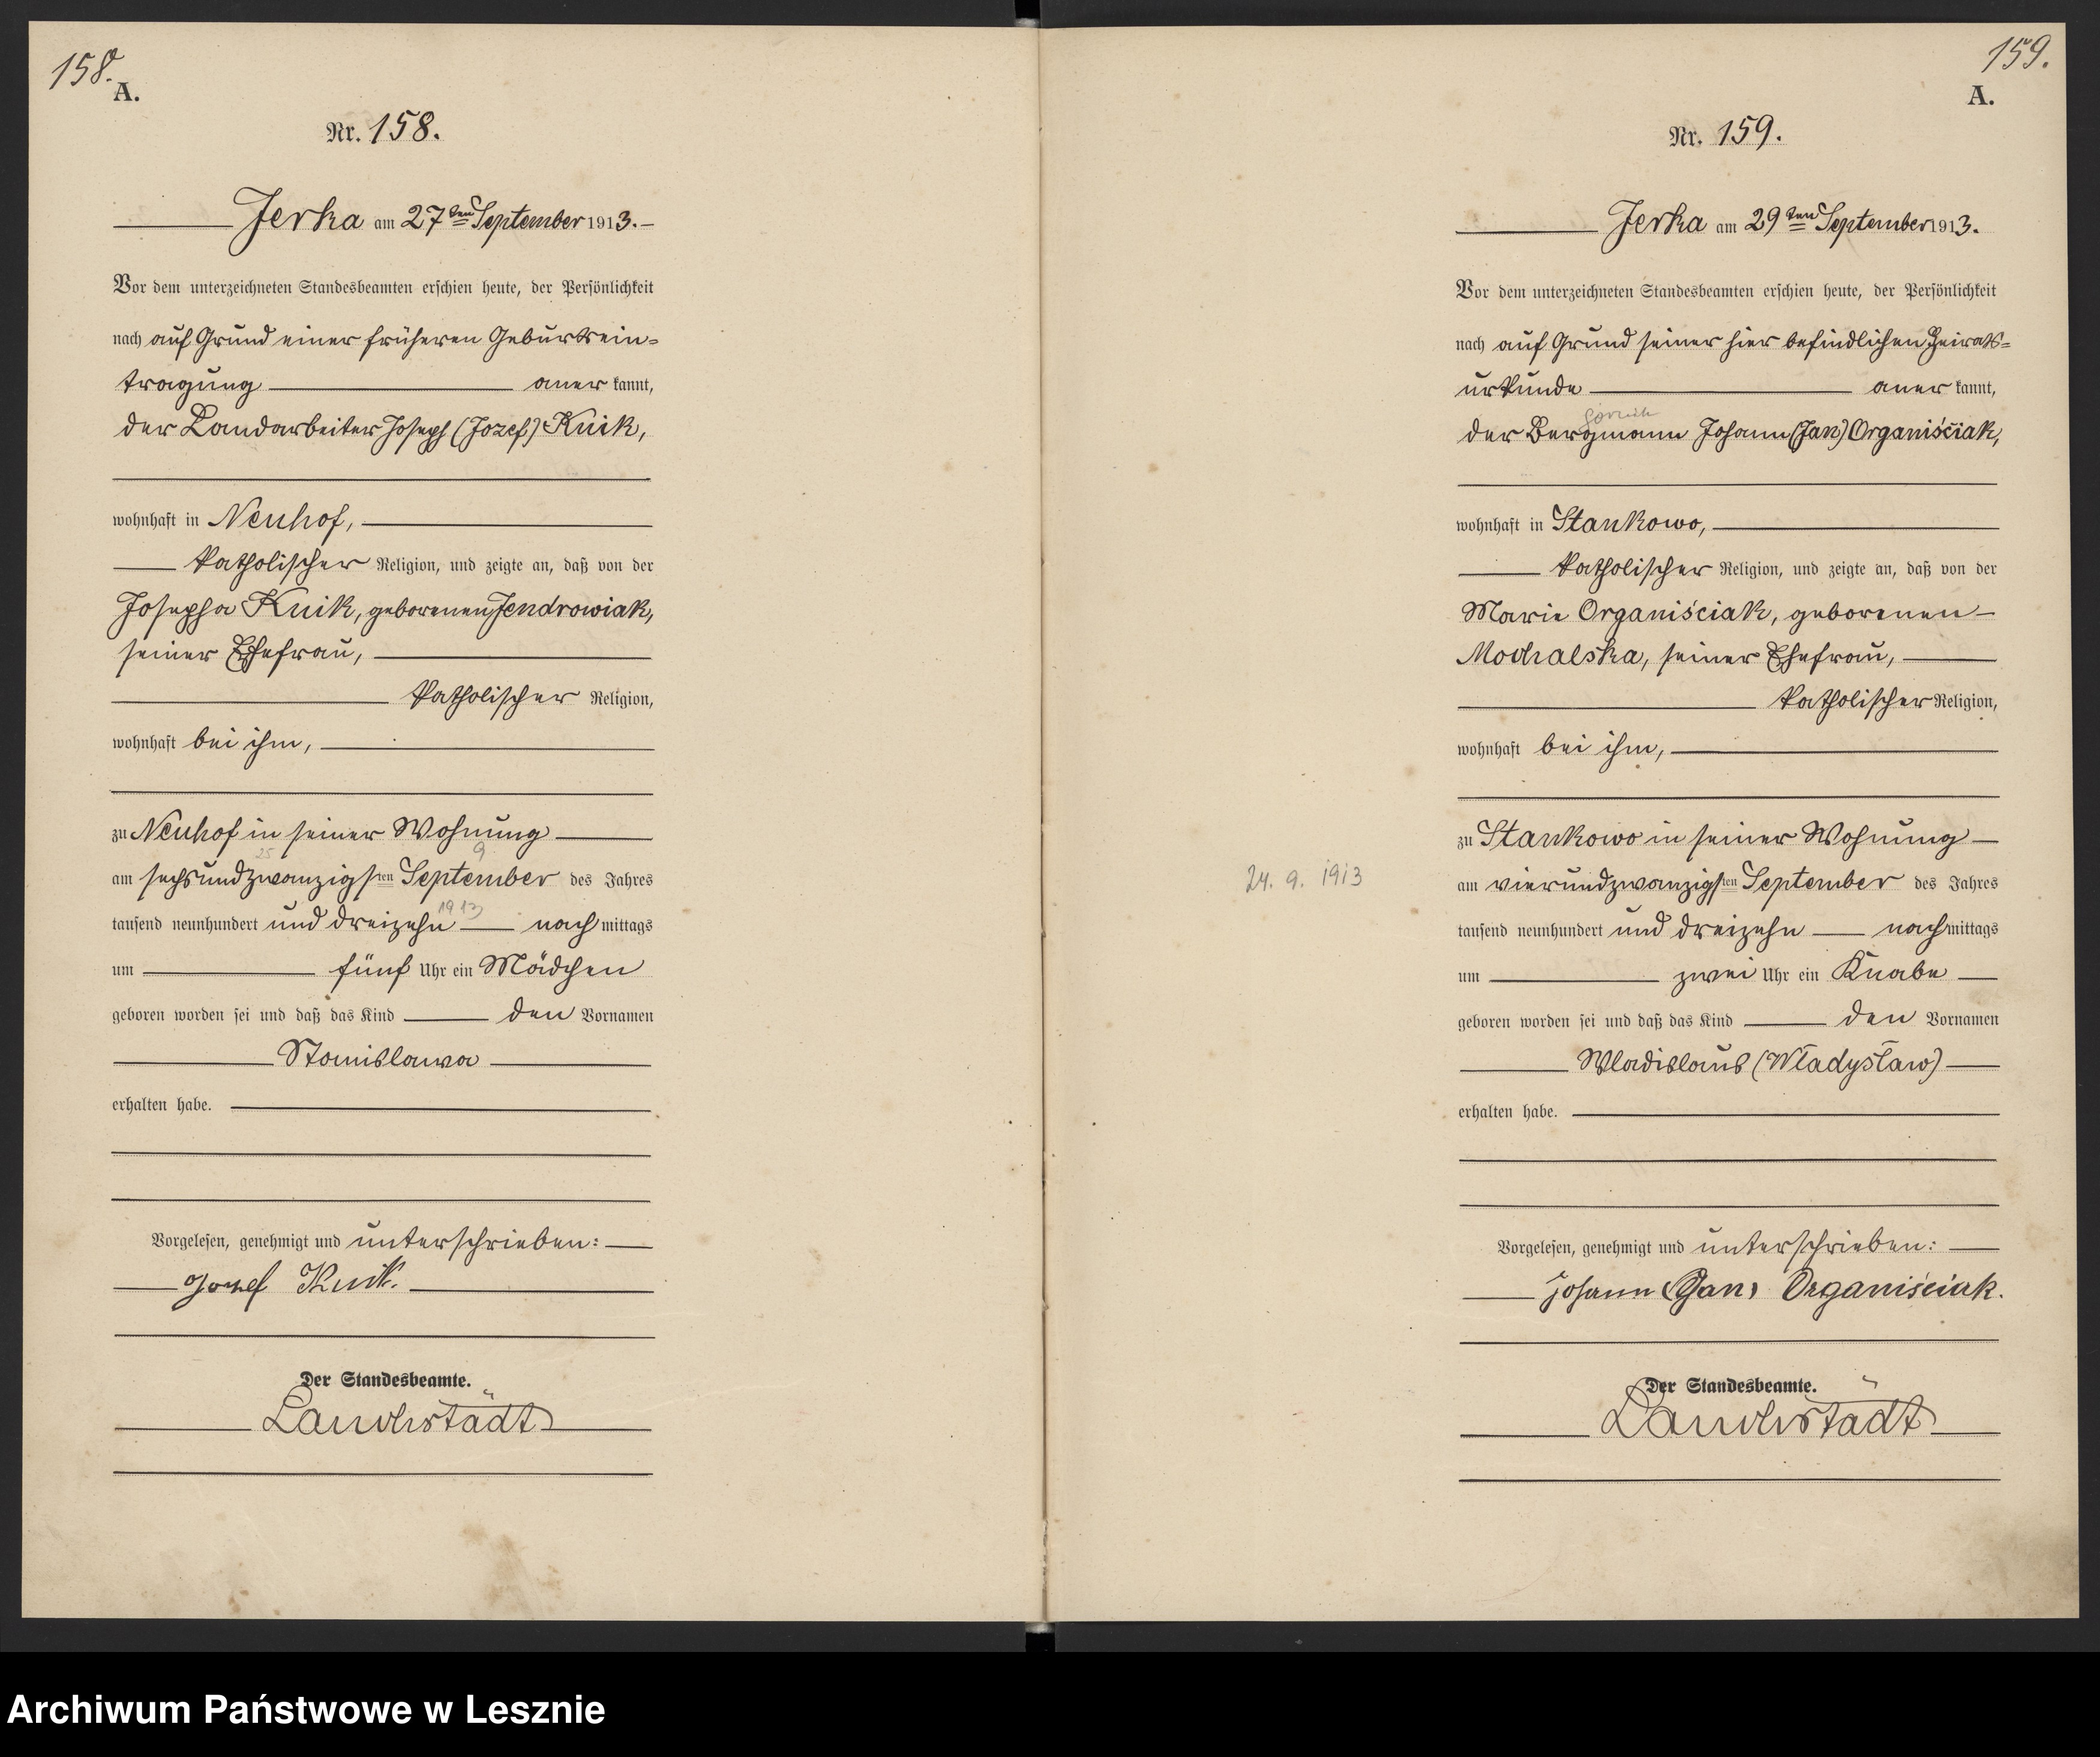 158.
A.
Nr. 158.
Jerka am 27ten September 1913.
Vor dem unterzeichneten Standesbeamten erschien heute, der Persönlichkeit
nach auf Grund einer früheren Geburtsein-
tragung anerkannt,
der Landarbeiter Joseph (Jozef) Knik,
wohnhaft in Neuhof,
katholischer Religion, und zeigte an, daß von der
Josepha Knik, geborenen Jendrowiak,
seiner Ehefrau,
katholischer Religion,
wohnhaft bei ihm,
zu Neuhof in seiner Wohnung
25 9
am sechsundzwanzigsten September des Jahres
1913
tausend neunhundert und dreizehn nachmittags
um fünf Uhr ein Mädchen
geboren worden sei und daß das Kind den Vornamen
Stanislawa
erhalten habe.
Vorgelesen, genehmigt und unterschrieben:
Jozef Knik.
Der Standesbeamte.
159.
A.
Nr. 159.
Jerka am 29ten September 1913.
Vor dem unterzeichneten Standesbeamten erschien heute, der Persönlichkeit
nach auf Grund seiner hier befindlichen Heirats-
urkunde anerkannt,
der Bergmann Johann (Jan) Organiściak,
wohnhaft in Stankowo,
katholischer Religion, und zeigte an, daß von der
Marie Organiściak, geborenen
Mochalska, seiner Ehefrau,
katholischer Religion,
wohnhaft bei ihm,
zu Stankowo in seiner Wohnung
24. 9. 1913
am vierundzwanzigsten September des Jahres
tausend neunhundert und dreizehn nachmittags
um zwei Uhr ein Knabe
geboren worden sei und daß das Kind den Vornamen
Wladislaus (Władysław)
erhalten habe.
Vorgelesen, genehmigt und unterschrieben:
Johann (Jan) Organiściak.
Der Standesbeamte.
Archiwum Państwowe w Lesznie